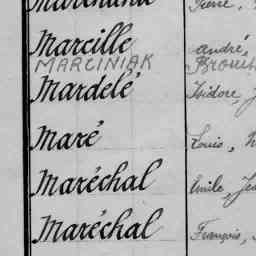 Marcille André,
MARCINIAK
Mardelé Isidore, J
Maré Louis,
Maréchal Emile, Je
Maréchal François,